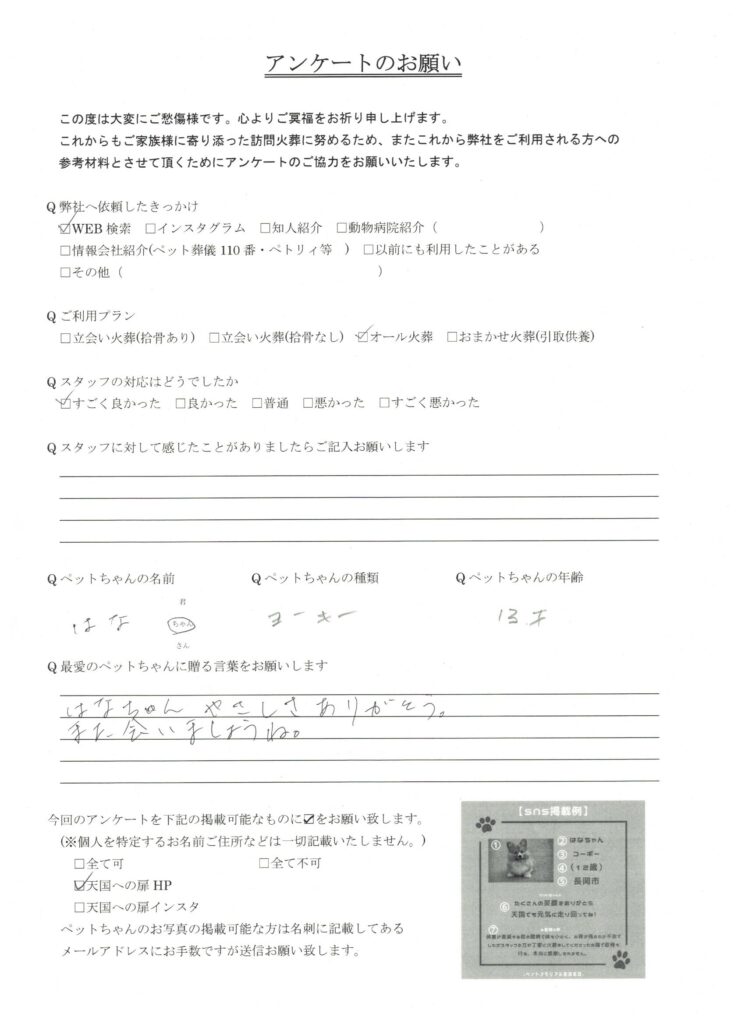 アンケートのお願い
この度は大変にご愁傷様です。心よりご冥福をお祈り申し上げます。
これからもご家族様に寄り添った訪問火葬に努めるため、またこれから弊社をご利用される方への
参考材料とさせて頂くためにアンケートのご協力をお願いいたします。
Q 弊社へ依頼したきっかけ
☑WEB 検索 □インスタグラム □知人紹介 □動物病院紹介（ ）
□情報会社紹介(ペット葬儀 110 番・ペトリィ等 ) □以前にも利用したことがある
□その他（ ）
Q ご利用プラン
□立会い火葬(拾骨あり) □立会い火葬(拾骨なし) ☑オール火葬 □おまかせ火葬(引取供養)
Q スタッフの対応はどうでしたか
☑すごく良かった □良かった □普通 □悪かった □すごく悪かった
Q スタッフに対して感じたことがありましたらご記入お願いします
Q ペットちゃんの名前 Q ペットちゃんの種類 Q ペットちゃんの年齢
君
はな ちゃん ヨーキー 13才
さん
Q 最愛のペットちゃんに贈る言葉をお願いします
はなちゃん やさしさありがとう。
また会いましょうね。
今回のアンケートを下記の掲載可能なものに☑をお願い致します。
(※個人を特定するお名前ご住所などは一切記載いたしません。)
□全て可 □全て不可
☑天国への扉 HP
□天国への扉インスタ
ペットちゃんのお写真の掲載可能な方は名刺に記載してある
メールアドレスにお手数ですが送信お願い致します。
【sns掲載例】
① ② はなちゃん
③ コーギー
④ (12歳)
⑤ 長岡市
⑥ たくさんの笑顔をありがとう
天国でも元気に走り回ってね!
⑦